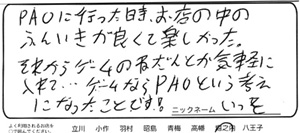 PAOに行った時、お店の中の
ふんいきが良くて楽しかった。
それからゲームのねだんとか気軽に
入れて…ゲームならPAOという考え
になったことです!!
ニックネーム いっそ
立川 小作 羽村 昭島 青梅 高幡 八王子